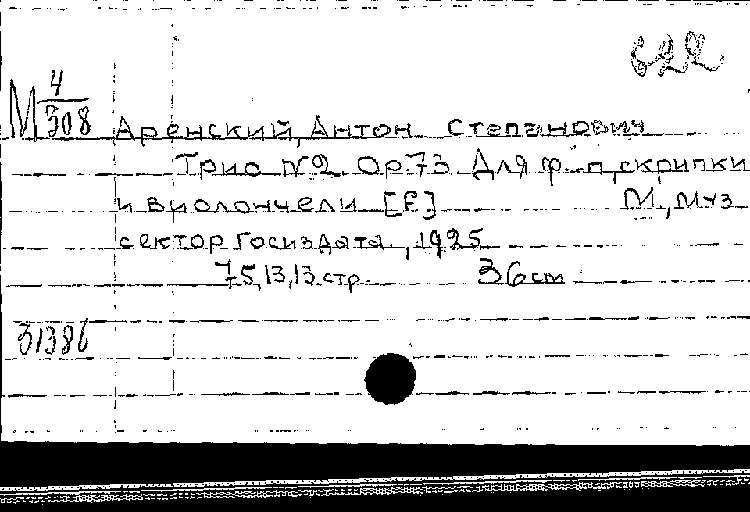 622
М 4/308
Аренский, Антон Степанович
Трио №2. Op.73. Для ф-п, скрипки
и виолончели [F] М., Муз
сектор Госиздата, 1925
75, 13, 13 стр. 36 cm
31386